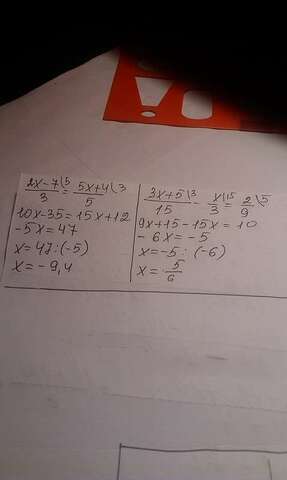 (2x-7)/3 \5 = (5x+4)/5 \3
10x-35=15x+12
-5x=47
x=47:(-5)
x=-9,4
(3x+5)/15 \3 - x/3 \15 = 2/9 \5
9x+15-15x=10
-6x=-5
x=-5:(-6)
x=5/6